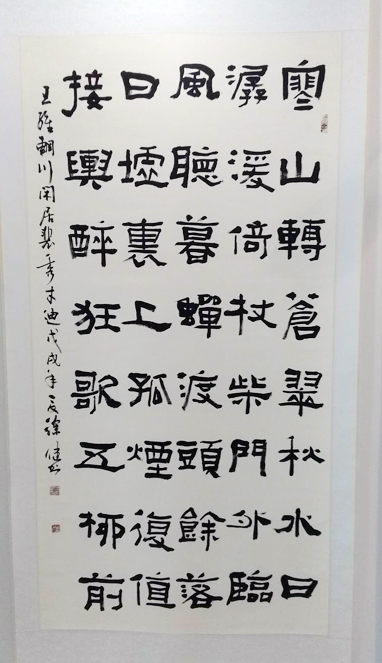 寒山轉蒼翠秋水日
潺湲倚杖柴門外臨
風聽暮蟬渡頭餘落
日墟裏上孤煙復值
接輿醉狂歌五柳前
王維輞川閑居裴秀才迪戊戌年夏徐健书